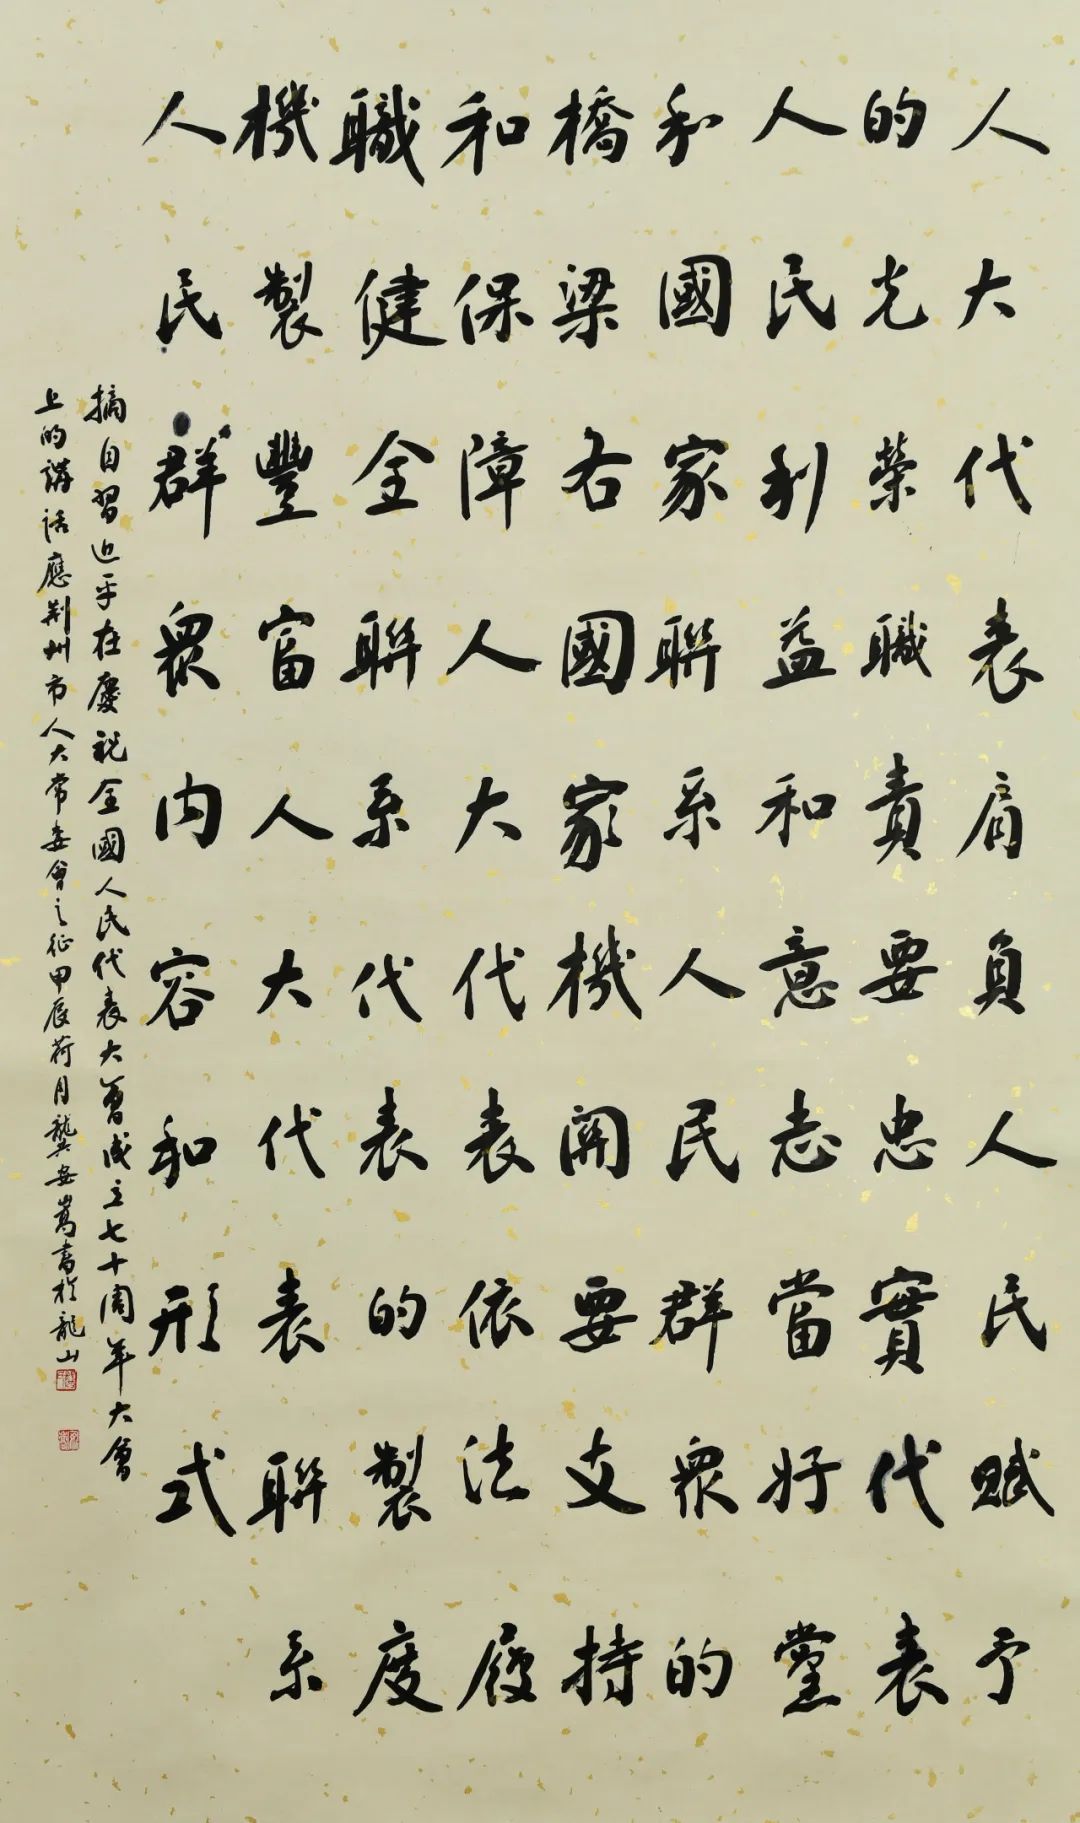 人大代表肩負人民賦予
的光榮職責要忠實代表
人民利益和意志當好黨
和國家聯系人民群眾的
橋梁各國家機關要支持
和保障人大代表依法履
職健全聯系代表的製度
機製豐富人大代表聯系
人民群眾內容和形式
摘自習近平在慶祝全國人民代表大會成立七十周年大會
上的講話應荊州市人大常委會之征甲辰荷月龔安嵩書於龍山